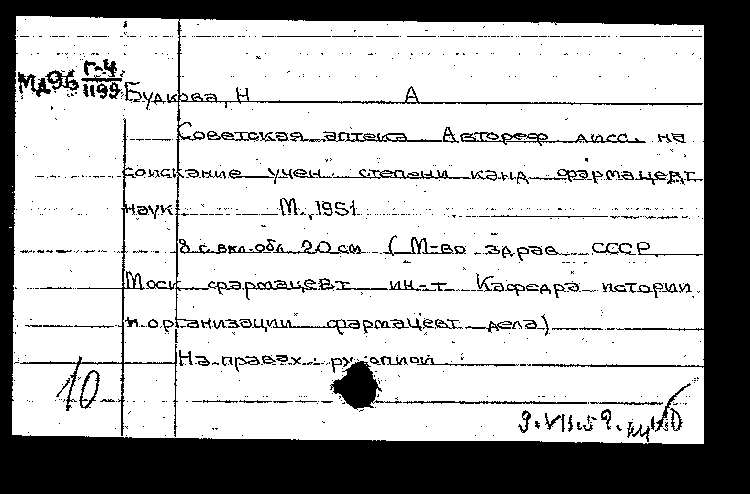 Мд96 Г-4/1199
Будкова, Н А
Советская аптека Автореф дисс. на
соискание учен степени канд фармацевт
наук М., 1951
8 с. вкл. обл. 20 см (М-во здрав СССР
Моск фармацевт ин-т Кафедра истории
и организации фармацевт дела)
На правах рукописи
10
9.VII.59.